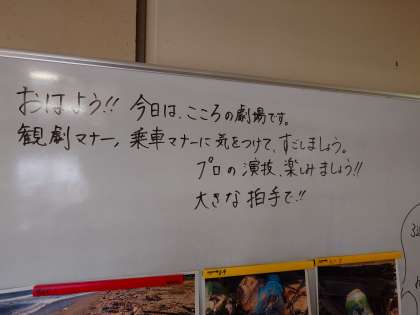 おはよう!! 今日は、こころの劇場です。
観劇マナー、乗車マナーに気をつけて、すごしましょう。
プロの演技、楽しみましょう!!
大きな拍手で!!